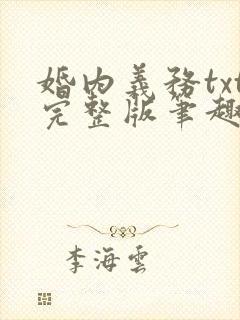 婚内義務txt
完整版筆趣
李海雲